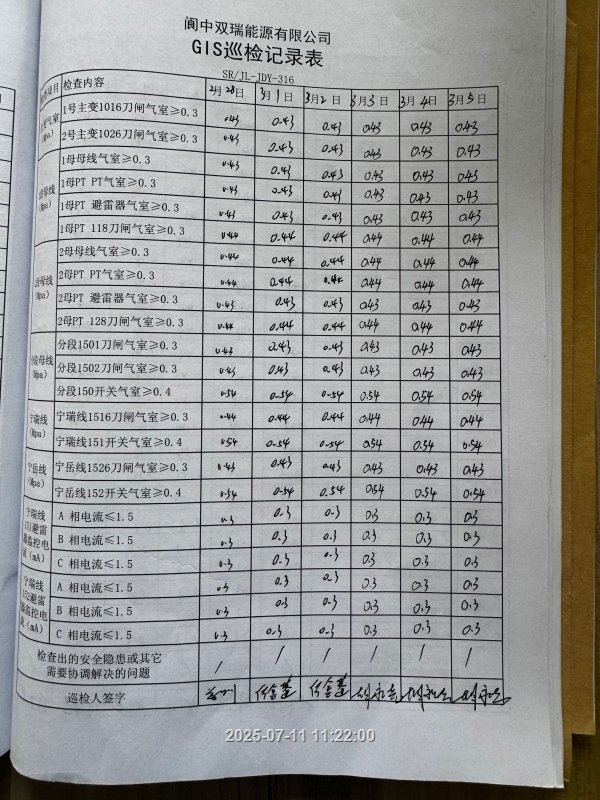 阆中双瑞能源有限公司
GIS巡检记录表
SR/JL-JDY-316
项目 检查内容 2月28日 3月1日 3月2日 3月3日 3月4日 3月5日
气室 1号主变1016刀闸气室≥0.3 0.43 0.43 0.43 0.43 0.43 0.43
(Mpa) 2号主变1026刀闸气室≥0.3 0.43 0.43 0.43 0.43 0.43 0.43
母线 1母母线气室≥0.3 0.43 0.43 0.43 0.43 0.43 0.43
(Mpa) 1母PT PT气室≥0.3 0.43 0.43 0.43 0.43 0.43 0.43
1母PT 避雷器气室≥0.3 0.43 0.43 0.43 0.43 0.43 0.43
1母PT 118刀闸气室≥0.3 0.44 0.44 0.44 0.44 0.44 0.44
母线 2母母线气室≥0.3 0.44 0.44 0.44 0.44 0.44 0.44
(Mpa) 2母PT PT气室≥0.3 0.44 0.44 0.44 0.44 0.44 0.44
2母PT 避雷器气室≥0.3 0.43 0.43 0.43 0.43 0.43 0.43
2母PT 128刀闸气室≥0.3 0.44 0.44 0.44 0.44 0.44 0.44
母线 分段1501刀闸气室≥0.3 0.43 0.43 0.43 0.43 0.43 0.43
(Mpa) 分段1502刀闸气室≥0.3 0.43 0.43 0.43 0.43 0.43 0.43
分段150开关气室≥0.4 0.54 0.54 0.54 0.54 0.54 0.54
宁瑞线 宁瑞线1516刀闸气室≥0.3 0.44 0.44 0.44 0.44 0.44 0.44
(Mpa) 宁瑞线151开关气室≥0.4 0.54 0.54 0.54 0.54 0.54 0.54
宁岳线 宁岳线1526刀闸气室≥0.3 0.43 0.43 0.43 0.43 0.43 0.43
(Mpa) 宁岳线152开关气室≥0.4 0.54 0.54 0.54 0.54 0.54 0.54
宁瑞线 A 相电流≤1.5 0.3 0.3 0.3 0.3 0.3 0.3
151避雷器监控电 B 相电流≤1.5 0.3 0.3 0.3 0.3 0.3 0.3
流(mA) C 相电流≤1.5 0.3 0.3 0.3 0.3 0.3 0.3
宁瑞线 A 相电流≤1.5 0.3 0.3 0.3 0.3 0.3 0.3
152避雷器监控电 B 相电流≤1.5 0.3 0.3 0.3 0.3 0.3 0.3
流(mA) C 相电流≤1.5 0.3 0.3 0.3 0.3 0.3 0.3
检查出的安全隐患或其它
需要协调解决的问题 / / / / / /
巡检人签字
2025-07-11 11:22:00